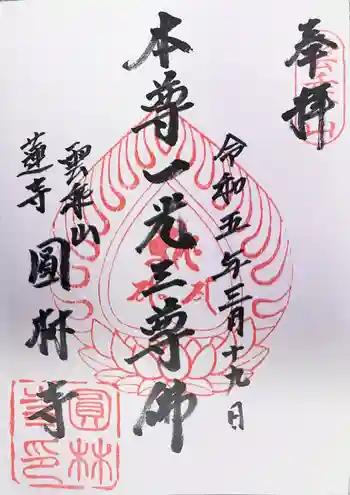 奉拝
令和五年三月十九日
本尊一光三尊佛
雲乗山
蓮寺
圓林寺
圓林
寺印